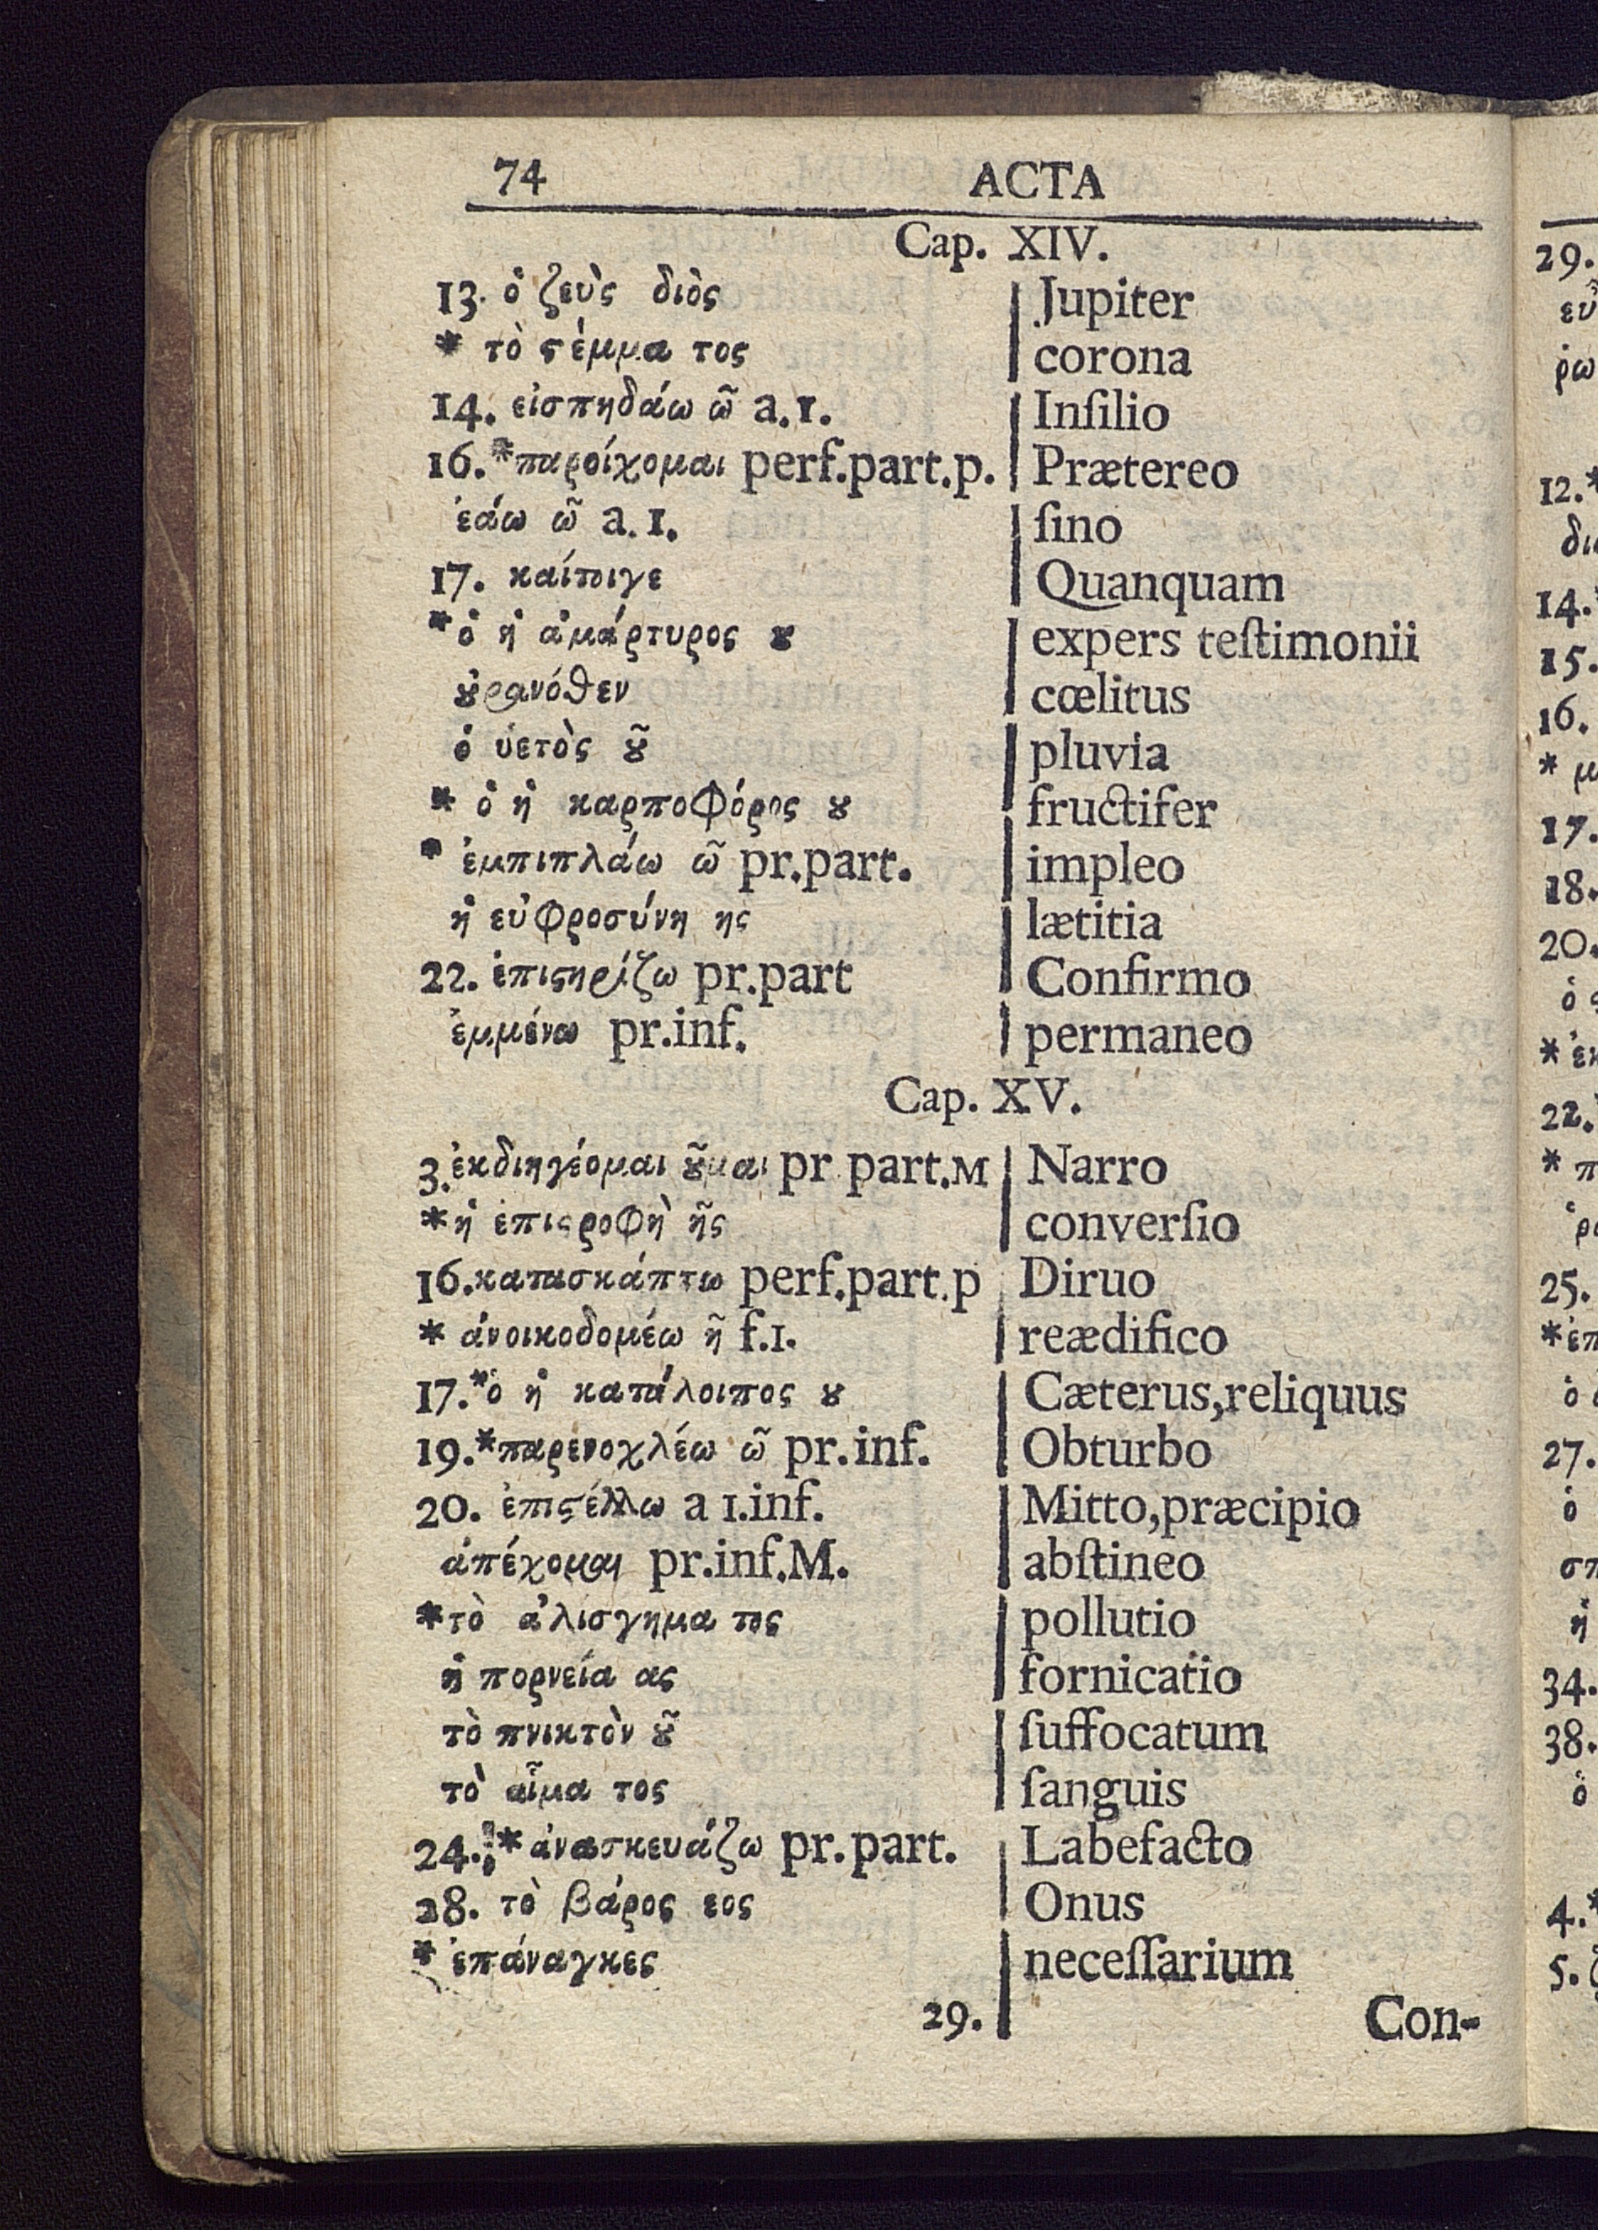 74 ACTA
Cap. XIV.
13. ὁ ζεὺς διὸς Jupiter
* τὸ ϛέμμα τος corona
14. εἰσπηδάω ῶ a.1. Inſilio
16.*παροίχομαι perf.part.p. Prætereo
ἐάω ῶ a.1. ſino
17. καίτοιγε Quanquam
*ὁ ἡ ἀμάρτυρος ȣ expers teſtimonii
ȣ̓ρανόθεν cœlitus
ὁ ὑετὸς ȣ͂ pluvia
* ὁ ἡ καρποφόρος ȣ fructifer
* ἐμπιπλάω ῶ pr.part. impleo
ἡ εὐφροσύνη ης lætitia
22. ἐπιϛηρίζω pr.part Confirmo
ἐμμένω pr.inf. permaneo
Cap. XV.
3.ἐκδιηγέομαι ȣ͂μαι pr part.M Narro
*ἡ ἐπιϛροφὴ ῆς converſio
16.κατασκάπτω perf.part.p Diruo
* ἀνοικοδομέω ῆ f.1. reædifico
17.*ὁ ἡ κατάλοιπος ȣ Cæterus,reliquus
19.*παρενοχλέω ῶ pr.inf. Obturbo
20. ἐπιϛέλλω a 1.inf. Mitto,præcipio
ἀπέχομαι pr.inf.M. abſtineo
*τὸ ἀλισγημα τος pollutio
ἡ πορνεία ας fornicatio
τὸ πνικτὸν ȣ͂ ſuffocatum
τὸ αἷμα τος ſanguis
24.*ἀνασκευάζω pr.part. Labefacto
28. τὸ βάρος εος Onus
* ἐπάναγκες neceſſarium
29. Con-
29.
εὐ
ρω
12.*
δι
14.*
15.
16.
* μ
17.
18.
20.
ὁ
*ἐκ
22.
* π
25.
*ἐπ
27.
ὁ
σπ
ἡ
34.
38.
ὁ
4.*
5.